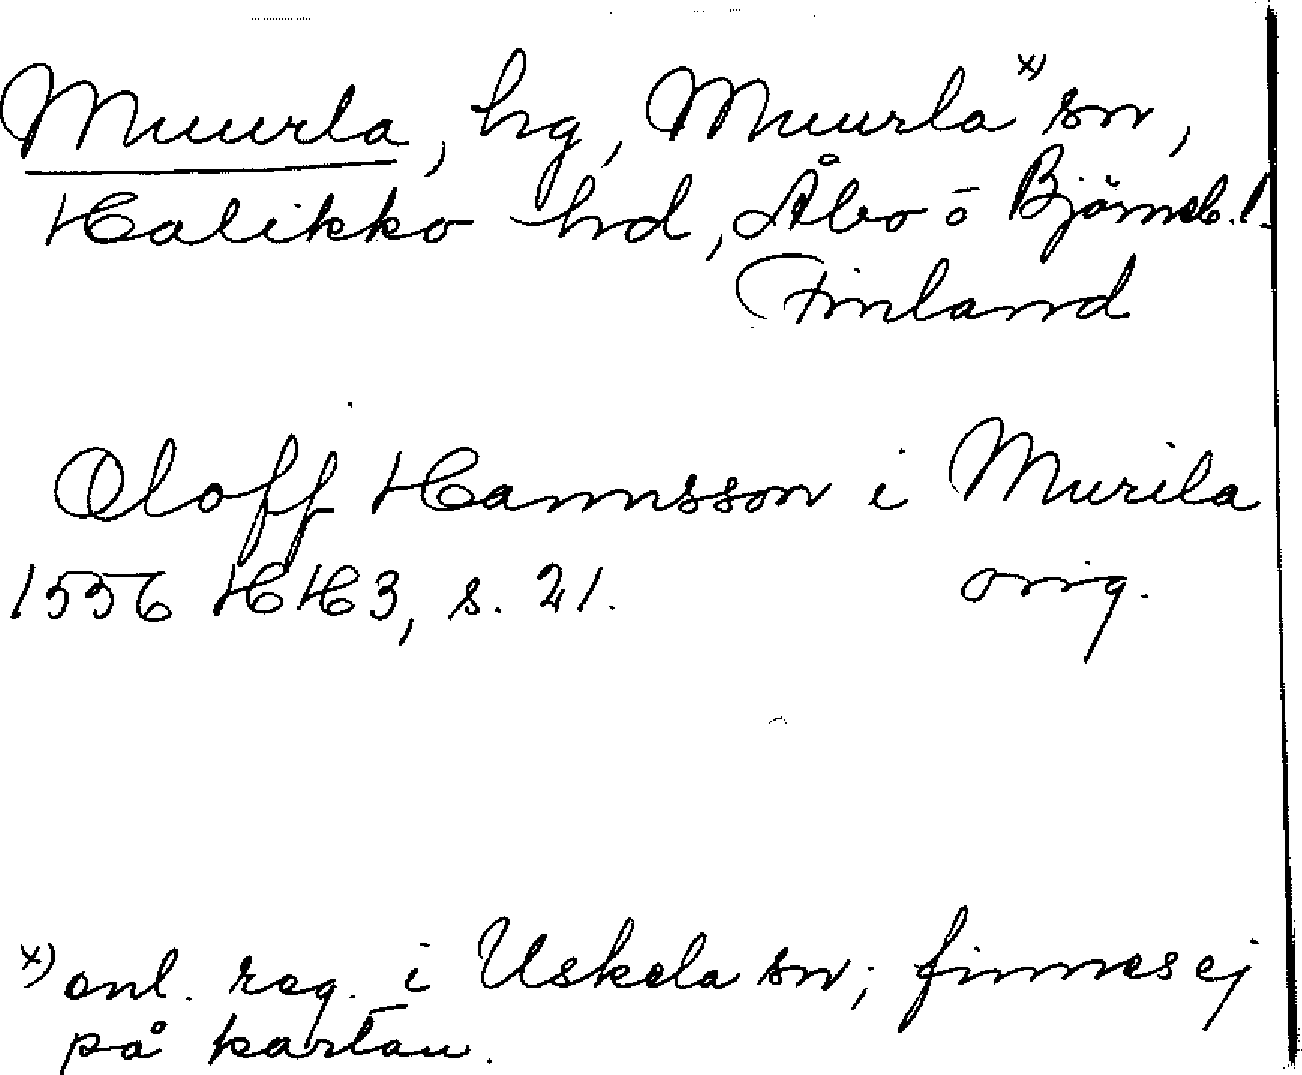 Muurla, hg, Muurla x) sn,
Halikko hd, Åbo o Björneb. l.
Finland
Oloff Hannsson i Murila
1556 HH3, s. 21. orig.
x) enl. reg. i Uskela sn; finnes ej
på kartan.